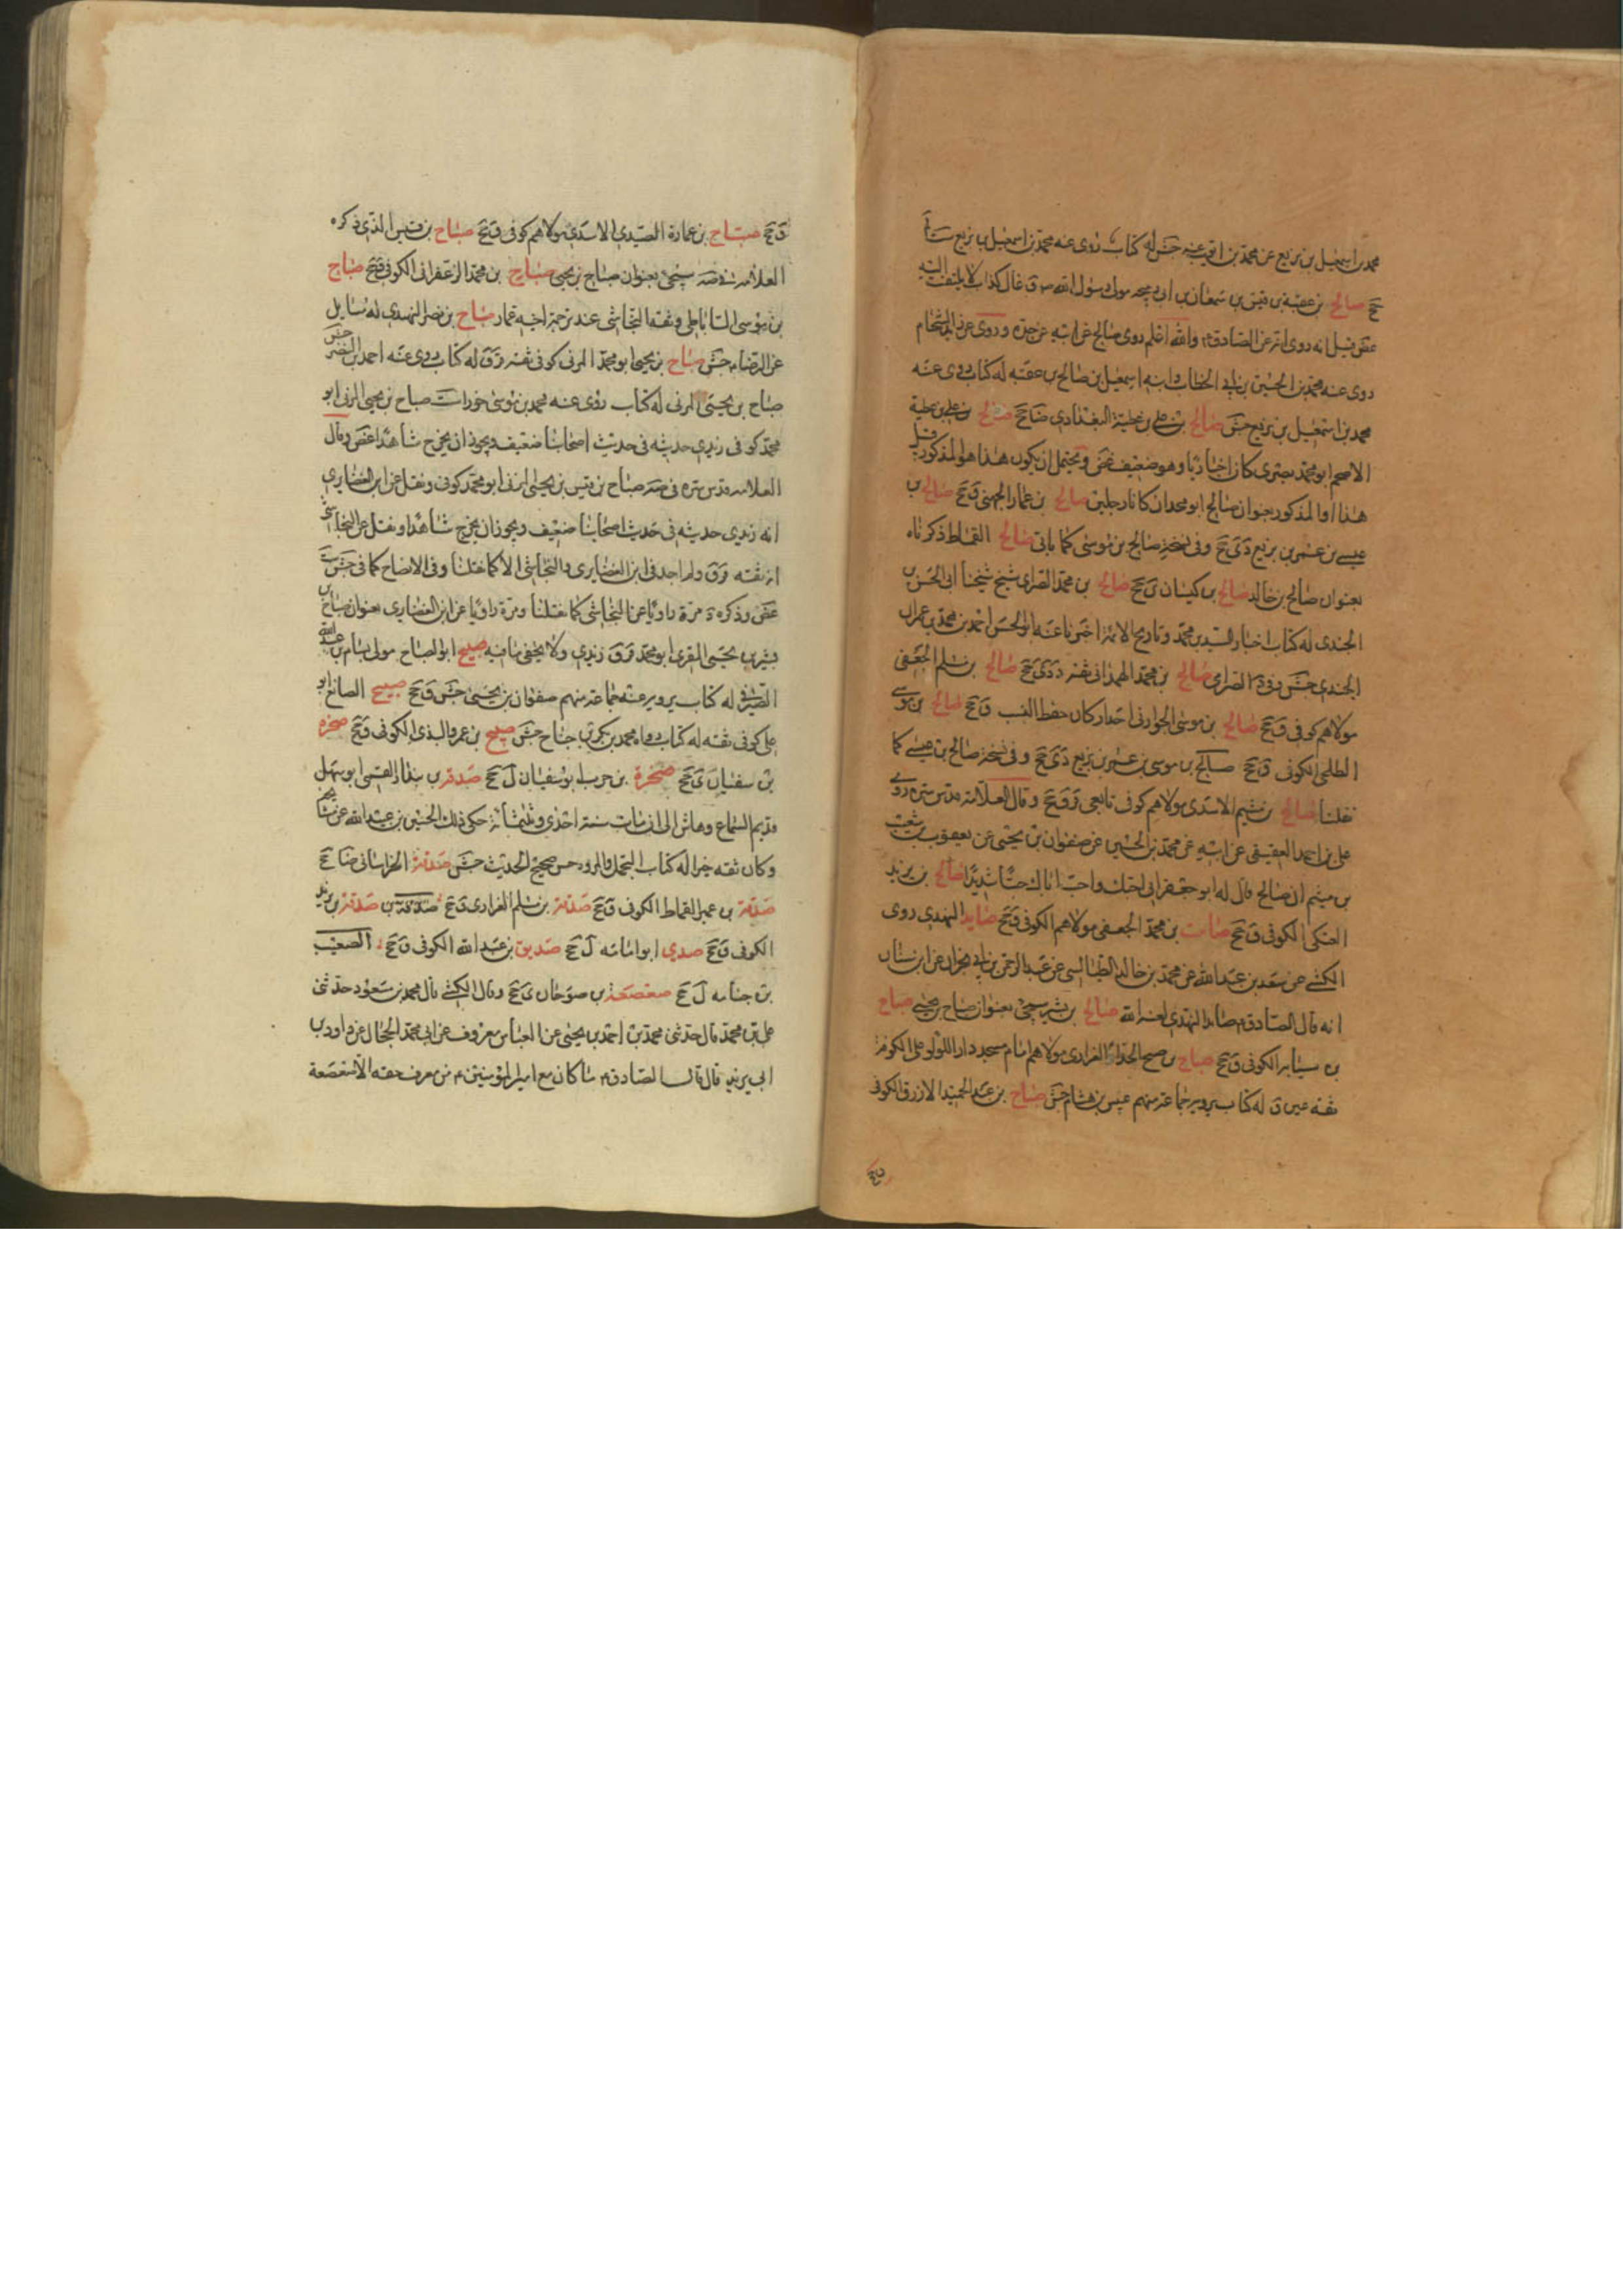 محمد بن اسمعيل بن بزيع عن محمد بن له كتاب روى عنه محمد بن اسمعيل بن بزيع
جخ صالح بن عقبة بن قيس بن سمعان بن ابى ربيحه مولى رسول الله ص ق غال كذاب لا يلتفت اليه
غض قيل انه روى عن الصادق ع والله اعلم روى صالح عن ابيه عن جده وروى عن زيد الشحام
روى عنه محمد بن الحسين بن ابى الخطاب وابنه اسمعيل بن صالح بن عقبه له كتاب روى عنه
محمد بن اسمعيل بن بزيع جش صالح بن على بن عطية البغدادى ضا جخ صالح بن على بن عطية
الاصم ابو محمد بصرى كان اخباريا وهو ضعيف غض ويحتمل ان يكون هذا هو المذكور قبل
هذا او المذكور بعنوان صالح ابو محمد ان كانا رجلين صالح بن عمار الجهنى ق جخ صالح بن
عيسى بن عمر بن بزيع دى جخ وفى نسخة صالح بن موسى كما ياتى صالح القماط ذكرناه
بعنوان صالح بن خالد صالح بن كيسان ى جخ صالح بن محمد الصراى شيخ شيخنا ابى الحسن بن
الجندى له كتاب اخبار السيد بن محمد وتاريخ الائمة اخبرنا عنه ابو الحسن احمد بن محمد بن عمران
الجندى جش وفى د الصراى صالح بن محمد الهمدانى ثقة د دى جخ صالح بن مسلم الجعفى
مولاهم كوفى ق جخ صالح بن موسى الجواربى احد اركان حفظ النسب ق جخ صالح بن موسى
الطلحى الكوفى ق جخ صالح بن موسى بن عمر بن بزيع دى جخ وفى نسخة صالح بن عيسى كما
نقلنا صالح بن ميثم الاسدى مولاهم كوفى تابعى ق جخ وقال العلامة قدس سره روى
على بن احمد العقيقى عن ابيه عن محمد بن الحسين عن صفوان بن يحيى عن يعقوب بن شعيب
بن ميثم ان صالح قال له ابو جعفر انى احبك واحب اباك حبا شديدا صالح بن يزيد
العتكى الكوفى ق جخ صامت بن محمد الجعفى مولاهم الكوفى ق جخ صايد النهدى روى
الكشى عن سعد بن عبد الله عن محمد بن خالد الطيالسى عن عبد الرحمن بن ابى نجران عن ابن سنان
انه قال الصادق ع صايد النهدى لعنه الله صالح بن بشير سيجئ بعنوان صباح بن يحيى صباح
بن سيابه الكوفى ق جخ صباح بن صبيح الحذاء الفزارى مولاهم امام مسجد دار اللؤلؤ على الكوفة
ثقة عين ق له كتاب يرويه جماعة منهم عبيس بن هشام جش صباح بن عبد الحميد الازرق الكوفى
ق جخ
ق جخ صباح بن عمارة الصيدى الاسدى مولاهم كوفى ق جخ صباح بن قيس الذى ذكره
العلامة فى ضه سيجئ بعنوان صباح بن يحيى صباح بن محمد الزعفرانى الكوفى ق جخ صباح
بن موسى الساباطى وثقه النجاشى عند ترجمة اخيه عمار صباح بن نصر النهدى له مسايل
عن الرضا ع جش صباح بن يحيى ابو محمد المزنى كوفى ثقة ق له كتاب روى عنه احمد بن النضر جش
صباح بن يحيى المزنى له كتاب روى عنه محمد بن موسى خوراء ست صباح بن يحيى المزنى ابو
محمد كوفى زيدى حديثه فى حديث اصحابنا ضعيف ويجوز ان يخرج شاهدا غض وقال
العلامة قدس سره فى ضه صباح بن قيس بن يحيى المزنى ابو محمد كوفى ونقل عن ابن الغضايرى
انه زيدى حديثه فى حديث اصحابنا ضعيف ويجوز ان يخرج شاهدا ونقل عن النجاشى
انه ثقة ولم اجد فى ابن الغضايرى والنجاشى الا كما نقلنا وفى الايضاح كما فى جش ست
غض وذكره د مرة راويا عن النجاشى كما نقلنا ومرة راويا عن ابن الغضايرى بعنوان صباح بن
بشير بن يحيى المقرى ابو محمد ق زيدى ولا يخفى ما فيه صبيح ابو الصباح مولى بسام بن عبد الله
الصيرفى له كتاب يرويه عنه جماعة منهم صفوان بن يحيى جش ق جخ صبيح الصائغ ابو
على كوفى ثقة له كتاب رواه محمد بن بكر بن جناح جش صبيح بن عمرو الكوفى ق جخ صخره
بن سفيان ى جخ صخرة بن حرب ابو سفيان ل جخ صدقه بن بندار القمى ابو سهل
قديم السماع وعاش الى ان مات سنة احدى وثلثمائة حكى ذلك الحسين بن عبيد الله عن مشايخه
وكان ثقة خيرا له كتاب التجمل والمروه حسن صحيح الحديث جش صدقة الخراسانى ضا جخ
صدقة بن عمير القماط الكوفى ق جخ صدقة بن مسلم الفزارى ق جخ صدقة بن يزيد
الكوفى ق جخ صدى ابو امامه ل جخ صديق بن عبد الله الكوفى ق جخ الصعب
بن جثامه ل جخ صعصعه بن صوحان ى جخ وقال الكشى قال محمد بن مسعود حدثنى
على بن محمد قال حدثنى محمد بن احمد بن يحيى عن العباس بن معروف عن ابى محمد الحجال عن داود بن
ابى يزيد قال قال الصادق ع ما كان مع امير المؤمنين ع من يعرف حقه الا صعصعة